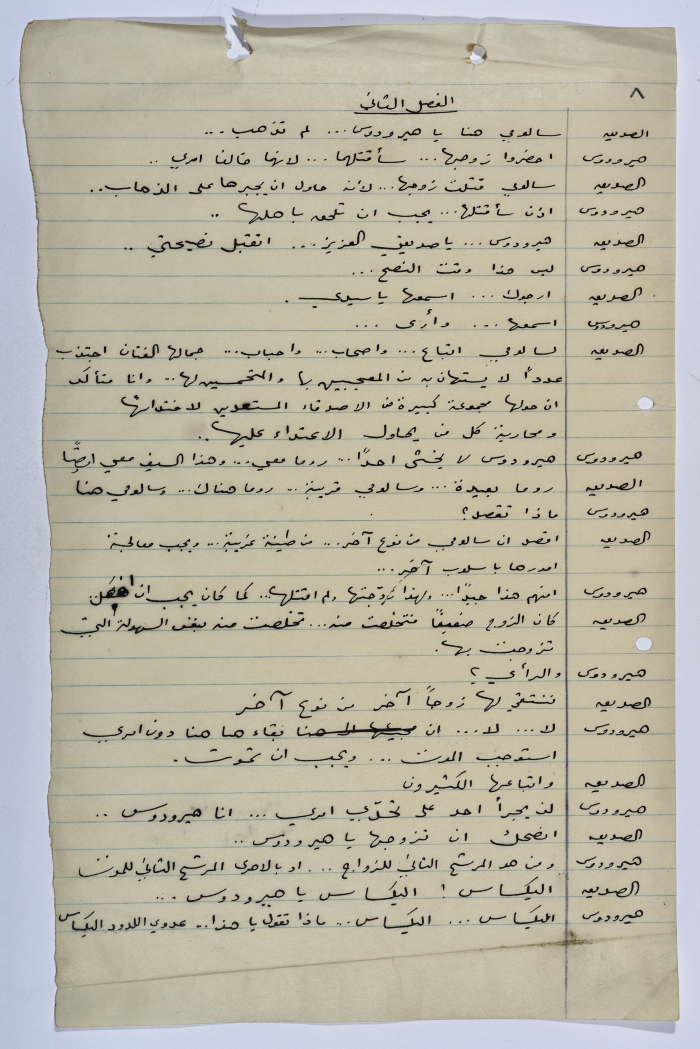 ٨
الفصل الثاني
الصديقه سالومي هنا يا هيرودوس... لم تذهب...
هيرودوس احضروا زوجها... سأقتلها... لأنها خالفت امري..
الصديقه سالومي قتلت زوجها.. لأنه حاول ان يجبرها على الذهاب..
هيرودوس اذن سأقتلها.. يجب ان تلحق باهلها..
الصديقه هيرودوس... يا صديقي العزيز... اتقبل نصيحتي..
هيرودوس ليس هذا وقت النصح...
الصديقه ارجوك... اسمعها يا سيدي.
هيرودوس اسمعها... وأرى...
الصديقه لسالومي اتباع... واصحاب... واحباب... جمالها الفتان اجتذب
عدداً لا يستهان به من المعجبين بها والمتحمسين لها.. وانا متأكد
ان حولها مجموعة كبيرة من الاصدقاء المستعدين لافتدائها
ومحاربة كل من يحاول الاعتداء عليها..
هيرودوس هيرودوس لا يخشى احداً... روما معي... وهذا السيف معي ايضاً
الصديقه روما بعيدة... وسالومي قريبة.. روما هناك... وسالومي هنا
هيرودوس ماذا تقصد؟
الصديقه اقصد ان سالومي من نوع آخر... من طينة غريبة... ويجب معالجة
امورها باسلوب آخر...
هيرودوس افهم هذا جيداً... ولهذا زوّجتها ولم اقتلها.. كما كان يجب ان افعل
الصديقه كان الزوج ضعيفاً فتخلصت منه... تخلصت منه بنفس السهولة التي
تزوجت بها.
هيرودوس والرأي؟
الصديقه ننتقي لها زوجاً آخر من نوع آخر
هيرودوس لا... لا... ان بقاءها هنا دون امري
استوجب الموت... ويجب ان تموت.
الصديقه واتباعها الكثيرون
هيرودوس لن يجرأ احد على تحدّي امري... انا هيرودوس..
الصديقه انصحك ان تزوجها يا هيرودوس..
هيرودوس ومن هو المرشح الثاني للزواج... او بالاحرى المرشح الثاني للموت
الصديقه اليكساس! اليكساس يا هيرودوس...
هيرودوس اليكساس... اليكساس... ماذا تقول يا هذا.. عدوي اللدود اليكساس